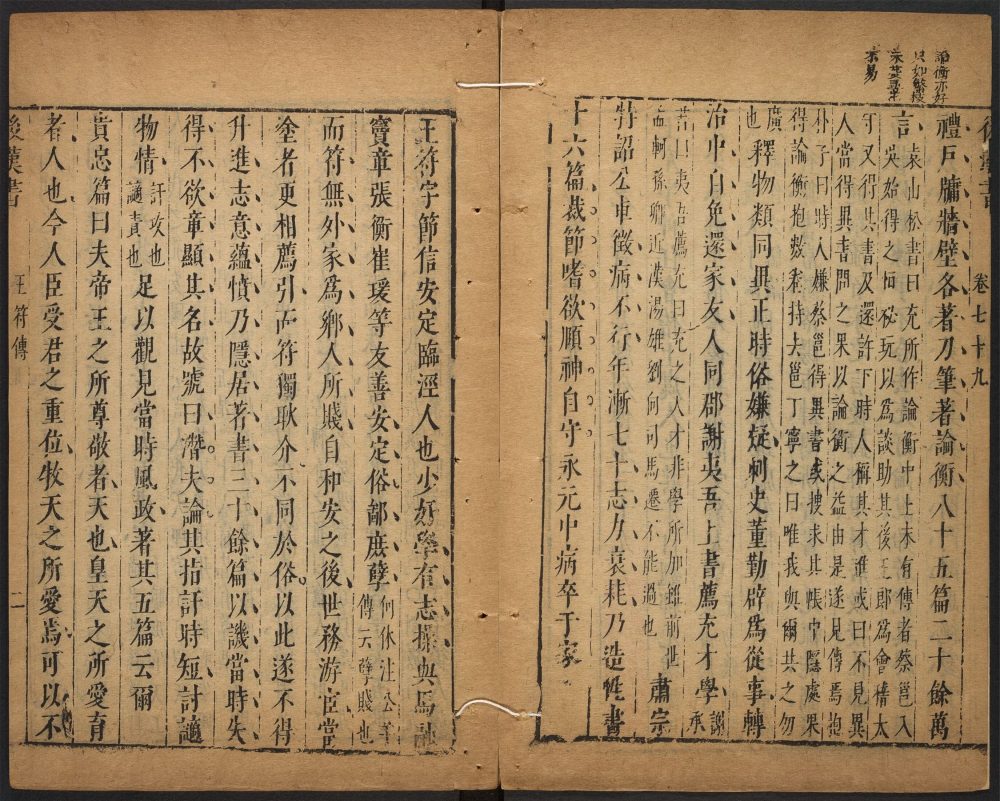 論衡亦好
卷七十九
禮戶牖牆壁各著刀筆著論衡八十五篇二十餘萬
言袁山松書曰充所作論衡中土未有傳者蔡邕入
吳始得之恒祕玩以為談助其後王郎為會稽太
守又得其書及還許下時人稱其才進或曰不見異
人當得異書問之果以論衡之益由是遂見傳焉抱
朴子曰時人嫌蔡邕得異書或搜求其帳中隱處果
得論衡抱數卷持去邕丁寧之曰唯我與爾共之勿
廣也釋物類同異正時俗嫌疑刺史董勤辟為從事轉
治中自免還家友人同郡謝夷吾上書薦充才學謝承
書曰夷吾薦充曰充之人才非學所加雖前世
孟軻孫卿近漢揚雄劉向司馬遷不能過也肅宗
特詔公車徵病不行年漸七十志力衰耗乃造性書
十六篇裁節嗜欲頤神自守永元中病卒于家
王符字節信安定臨涇人也少好學有志操與馬融
竇章張衡崔瑗等友善安定俗鄙庶孽何休注公羊傳云孽賤也
而符無外家為鄉人所賤自和安之後世務游宦當
塗者更相薦引而符獨耿介不同於俗以此遂不得
升進志意蘊憤乃隱居著書三十餘篇以譏當時失
得不欲章顯其名故號曰潛夫論其指訐時短討讁
物情訐攻也讁責也足以觀見當時風政著其五篇云爾
貴忠篇曰夫帝王之所尊敬者天也皇天之所愛育
者人也今人臣受君之重位牧天之所愛焉可以不
後漢書 王符傳 二